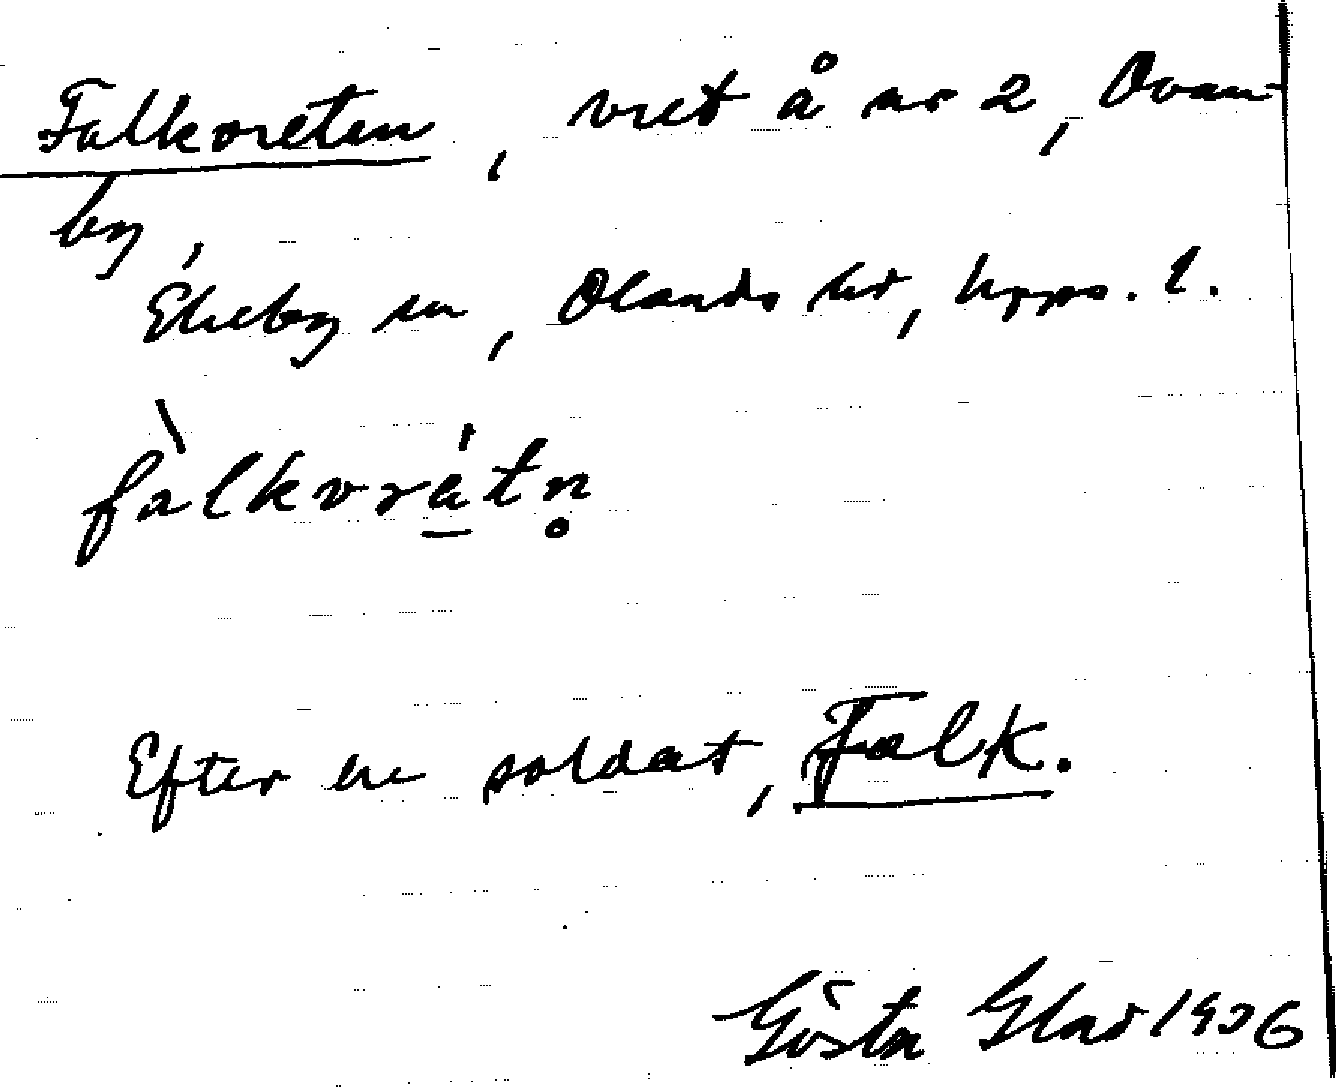 Falkvreten, vret å nr 2, Ovan-
by,
Ekeby sn, Olands hd, Upps. l.
fàlkvrätn̥
Efter en soldat, Falk.
Gösta Glad 1936